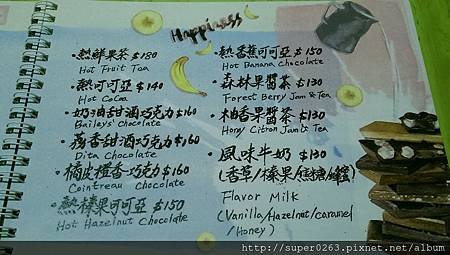 Happiness
熱鮮果茶 $180
Hot Fruit Tea
熱可可亞 $140
Hot Cocoa
奶油甜酒巧克力 $160
Baileys' chocolate
荔香甜酒巧克力 $160
Dita Chocolate
橘皮橙香巧克力 $160
Cointreau Chocolate
熱榛果可可亞 $150
Hot Hazelnut Chocolate
熱香蕉可可亞 $150
Hot Banana Chocolate
森林果醬茶 $130
Forest Berry Jam & Tea
柚香果醬茶 $130
Hony Citron Jam & Tea
風味牛奶 $130
(香草/榛果/焦糖/蜂蜜)
Flavor Milk
(Vanilla/Hazelnut/caramel
/Honey)
http://super0263.pixnet.net/album